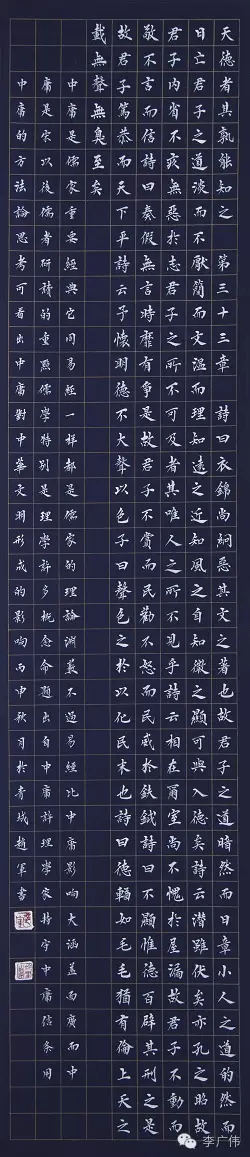 天德者其孰能知之 第三十三章 詩曰衣錦尚絅惡其文之著也故君子之道暗然而日章小人之道的然而
日亡君子之道淡而不厭簡而文溫而理知遠之近知風之自知微之顯可與入德矣詩云潜雖伏矣亦孔之昭故
君子內省不疚無惡於志君子之所不可及者其唯人之所不見乎詩云相在爾室尚不愧於屋漏故君子不動而
敬不言而信詩曰奏假無言時靡有爭是故君子不賞而民勸不怒而民威於鈇鉞詩曰不顯惟德百辟其刑之是
故君子篤恭而天下平詩云予懷明德不大聲以色子曰聲色之於以化民末也詩曰德輶如毛毛猶有倫上天之
載無聲無臭至矣
中庸是儒家重要經典它同易經一樣都是儒家的理論淵藪不過易經比中庸影响大涵盖面廣而中
庸是宋以後儒者研讀的重點儒經學特別是理學許多概念命題出自中庸許理學家持守中庸信条同
中庸的方法論思考可看出中庸對中華文明形成的影响丙申秋月於青城趙軍書
李广伟